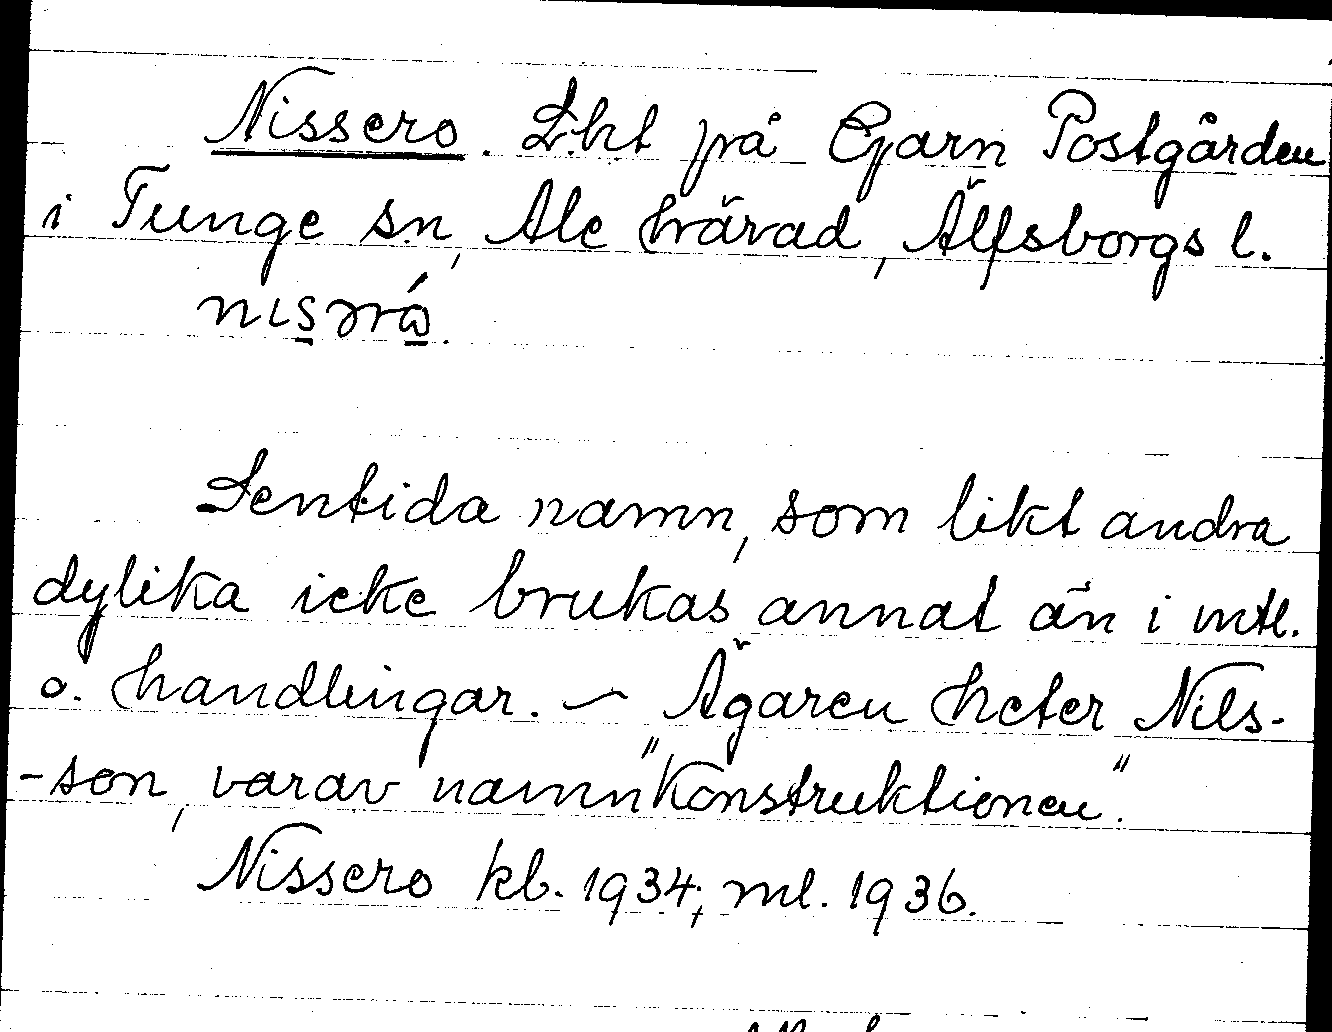 Nissero. Lht på Gjarn Postgården
i Tunge sn, Ale härad, Älfsborgs l.
Sentida namn, som likt andra
dylika icke brukas annat än i mtl.
o. handlingar. – Ägaren heter Nils-
-son, varav namn"konstruktionen".
Nissero kb. 1934; ml. 1936.